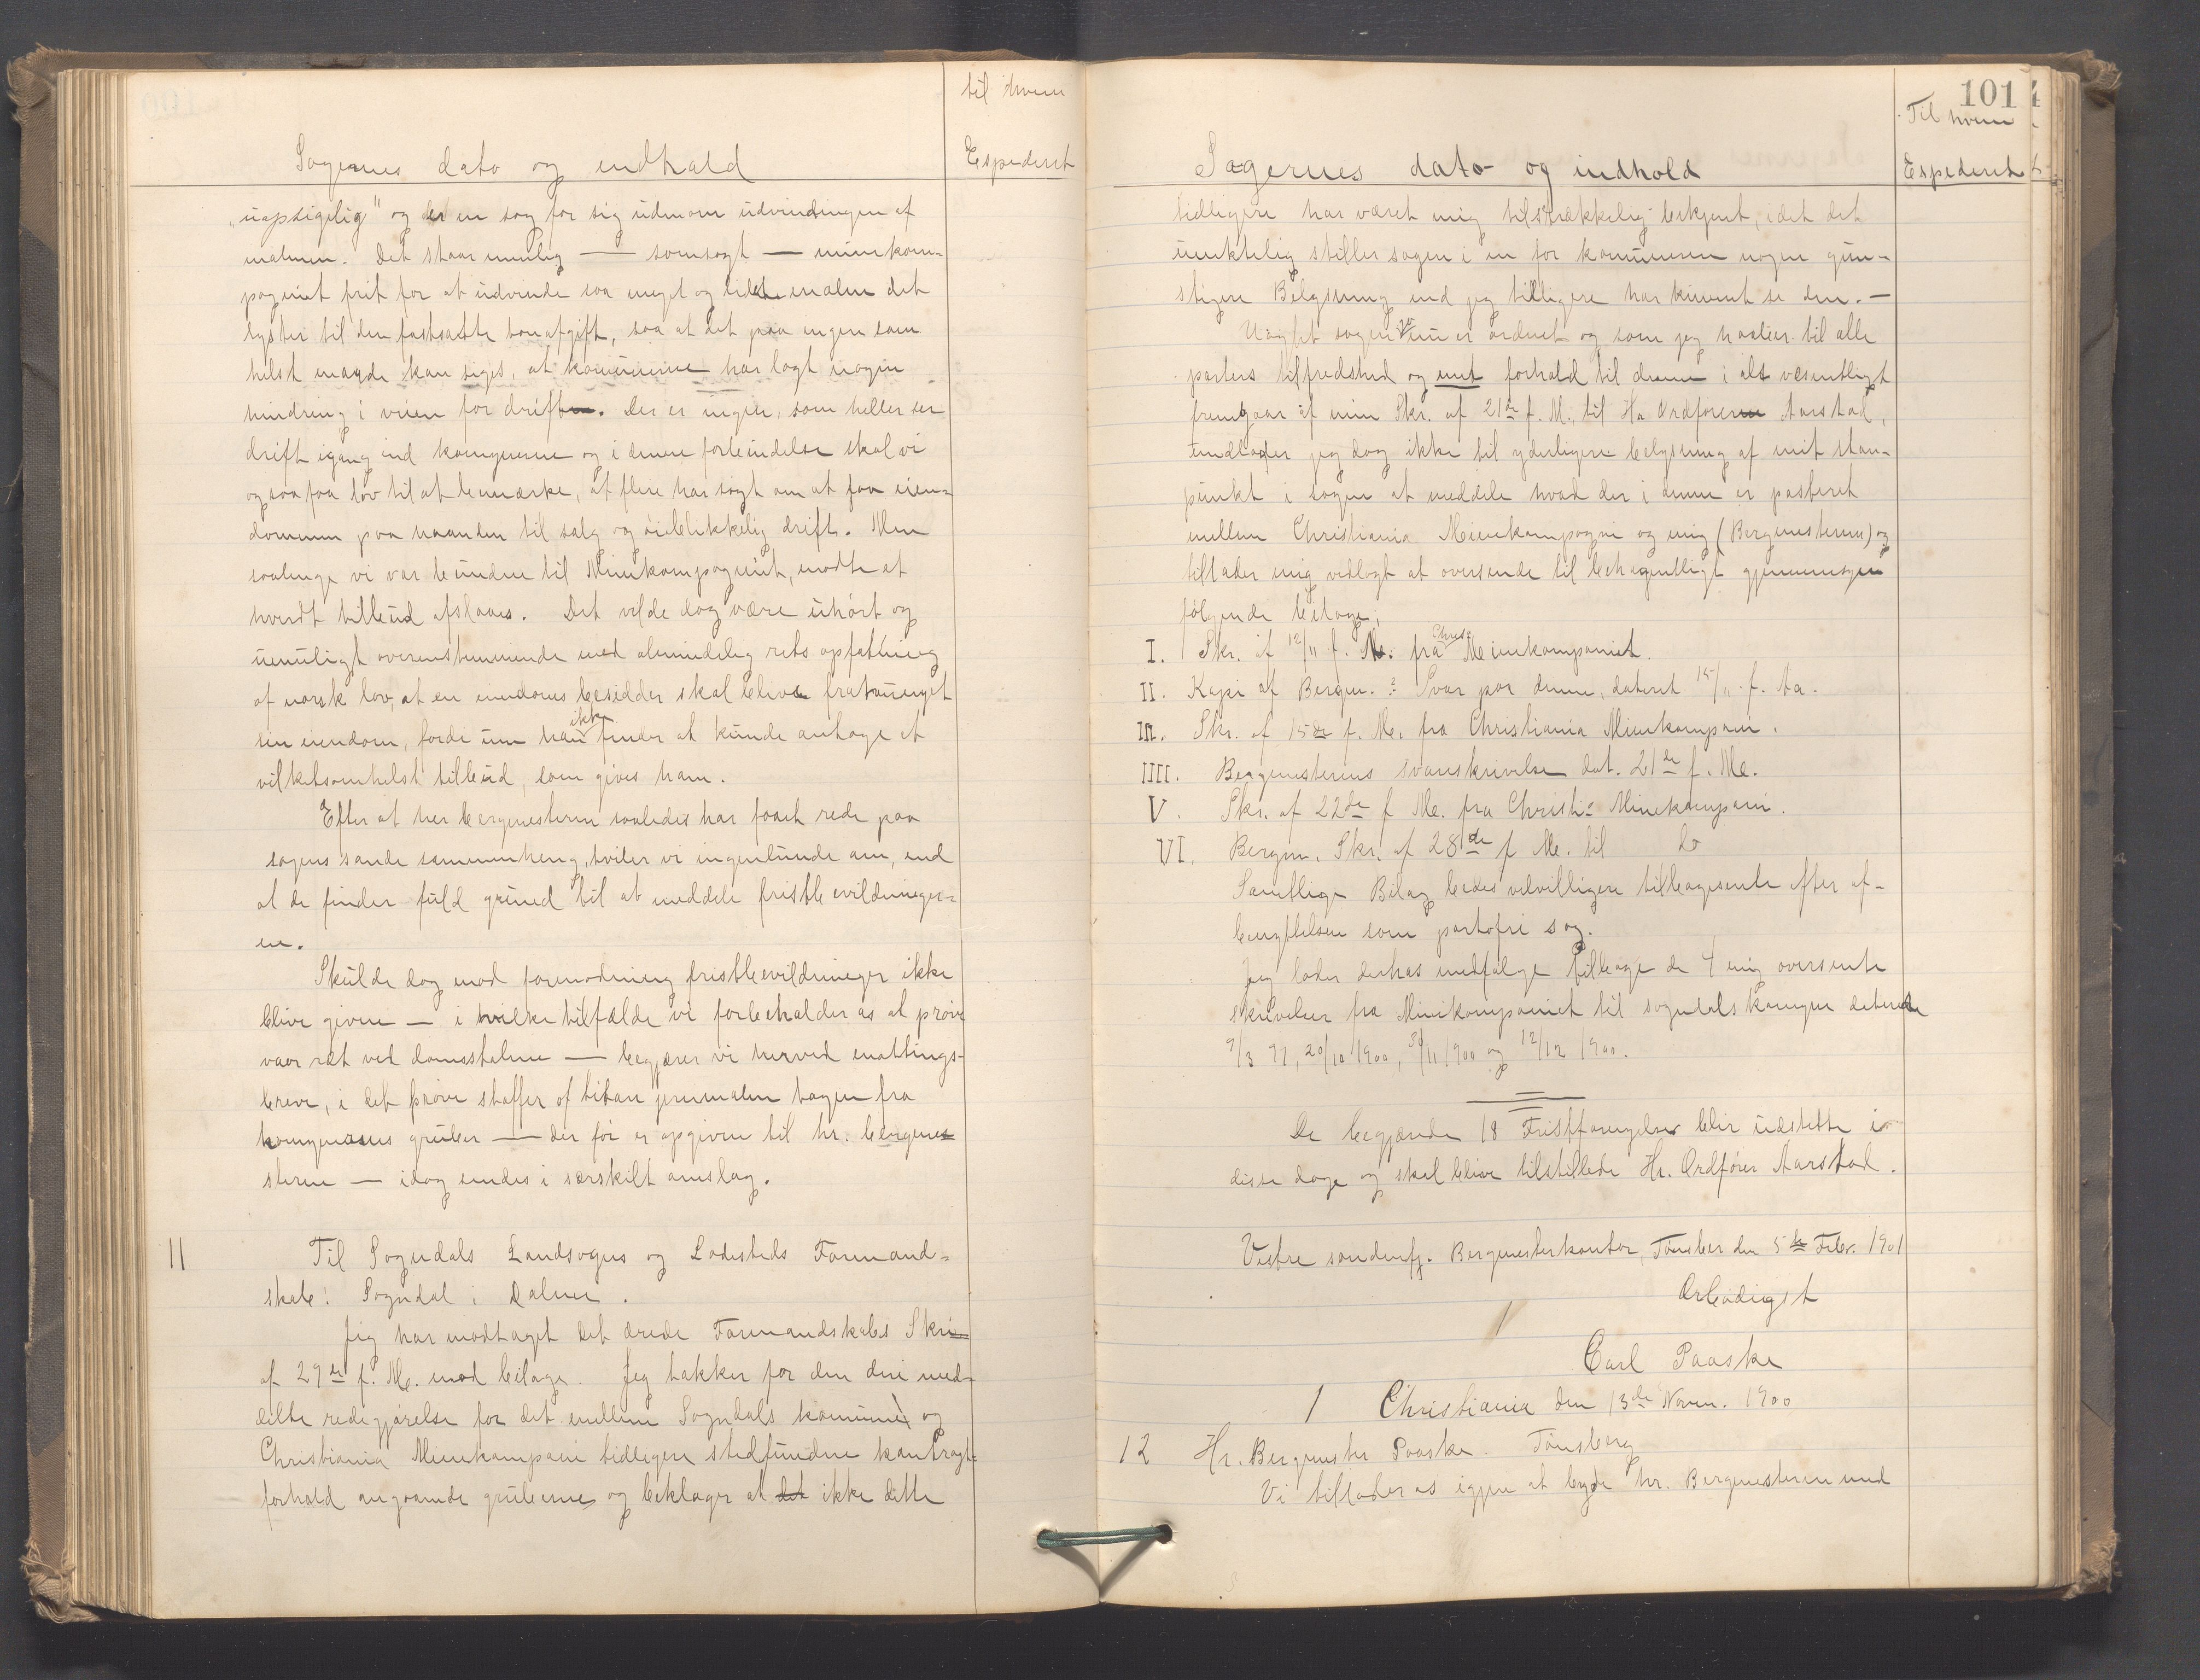 til hvem
Sagernes dato og indhold
Expederet
„uopsigelig" og er en sag for sig udenom udvindingen af
malmen. Det staar nemlig — somsagt — minekom-
pagniet frit for at udvinde saa meget og lidet malm det
lyster til den fastsatte tonafgift, saa at det paa ingen som
helst maade kan siges, at kommunen har lagt nogen
hindring i veien for driften. Der er ingen, som heller ser
drift igang end kommunen og i denne forbindelse skal vi
ogsaa faa lov til at bemærke, at flere har søgt om at faa eien-
dommen paa haanden til salg og øieblikkelig drift. Men
saalænge vi var bundne til Minekompagniet, maatte et
hvert tilbud afslaaes. Det vilde dog være uhørt og
umuligt overensstemmende med almindelig rets opfatning
af norsk lov, at en eiendoms besidder skal blive fratvunget
sin eiendom, fordi om han ikke finder at kunde antage et
hvilketsomhelst tilbud, som gives ham.
Efter at herr bergmesteren saaledes har faaet rede paa
sagens sande sammenheng, tviler vi ingenlunde om, end
at de finder fuld grund til at meddele fristbevildninger-
ne.
Skulde dog mod formodning fristbevildninger ikke
blive givne — i hvilke tilfælde vi forbeholder os at prøve
vaar ret ved domstolene — begjærer vi herved mutings-
breve, i det prøve stoffer af titan jernmalm tagen fra
kommunens gruber — der før er opgivne til hr. bergmes
steren — idag sendes i særskilt omslag.
11
Til Sogndals Landsogns og Ladesteds Formand-
skab. Sogndal i Dalene.
Jeg har modtaget det ærede Formandskabs Skri
af 29de f. M. med bilage. Jeg takker for den deri med-
delte redegjørelse for det mellem Sogndals kommune og
Christiania Minekompani tidligere stedfundne kontragt-
forhold angaaende gruberne og beklager at det ikke dette
101
Til hvem
Sagernes dato og indhold
Expederet
tidligere har været mig tilstrækkelig bekjent, idet det
unektelig stiller sagen i en for kommunen nogen gun-
stigere Belysning end jeg tidligere har kunnet se den. —
Uagtet sagen jo nu er ordnet og som jeg haaber til alle
parters tilfredshed og mit forhold til denne i alt væsentligt
fremgaar af min Skr. af 21de f. M. til Hr. Ordføreren Aarstad,
undlader jeg dog ikke til yderligere belysning af mit stan-
punkt i sagen at meddele hvad der i denne er passeret
mellem Christiania Minekompagni og mig (Bergmesteren) og
tillader mig vedlagt at oversende til behageligt gjennemsyn
følgende bilage;
I. Skr. af 12/11 f. A. fra Chris. Minekompaniet.
II. Kopi af Bergm. Svar paa denne, dateret 15/11 f. Aa.
III. Skr. af 15de f. M. fra Christiania Minekompani.
IIII. Bergmesterens svarskrivelse dat. 21de f. M.
V. Skr. af 22de f M. fra Christi: Minekompani.
VI. Bergm. Skr. af 28de f M. til Do
Samtlige Bilag bedes velvilligere tilbagesendt efter af-
benyttelsen som portofri sag.
Jeg lader derhos medfølge tilbage de 4 mig oversente
skrivelser fra Minekompaniet til sogndals kommune daterede
9/3 97, 20/10 1900, 30/11 1900 og 12/12 1900.
De begjærede 18 Fristfornyelser blir udstedte i
disse dage og skal blive tilstillede Hr. Ordfører Aarstad.
Vestre søndenfj. Bergmesterkontor, Tønsber den 5te Febr. 1901
Ærbødigst
Carl Paaske
Christiania den 13de Novem. 1900
12 Hr. Bergmester Paaske. Tønsberg
Vi tillader os igjen at byde hr. Bergmesteren med